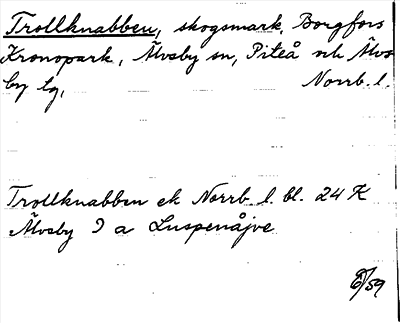 Trollknabben, skogsmark, Borgfors
Kronopark, Älvsby sn, Piteå och Älvs
by lg, Norrb. l.
Trollknabben ek Norrb. l. bl. 24 K
Älvsby 9 a Luspenåjve
/59